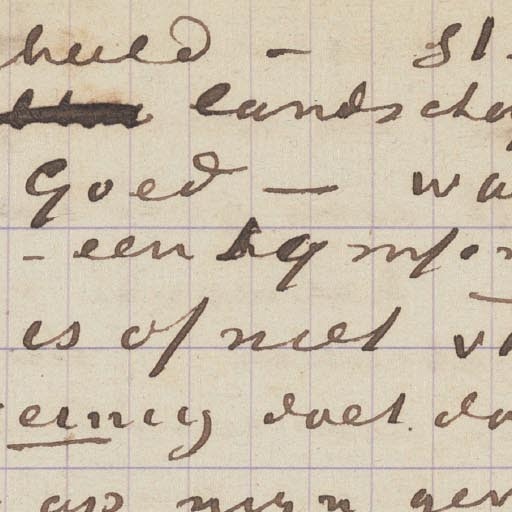 heeld – St
landschap
Goed – wa
– een symfon
is of niet v
eenig doet do
op mijn gev